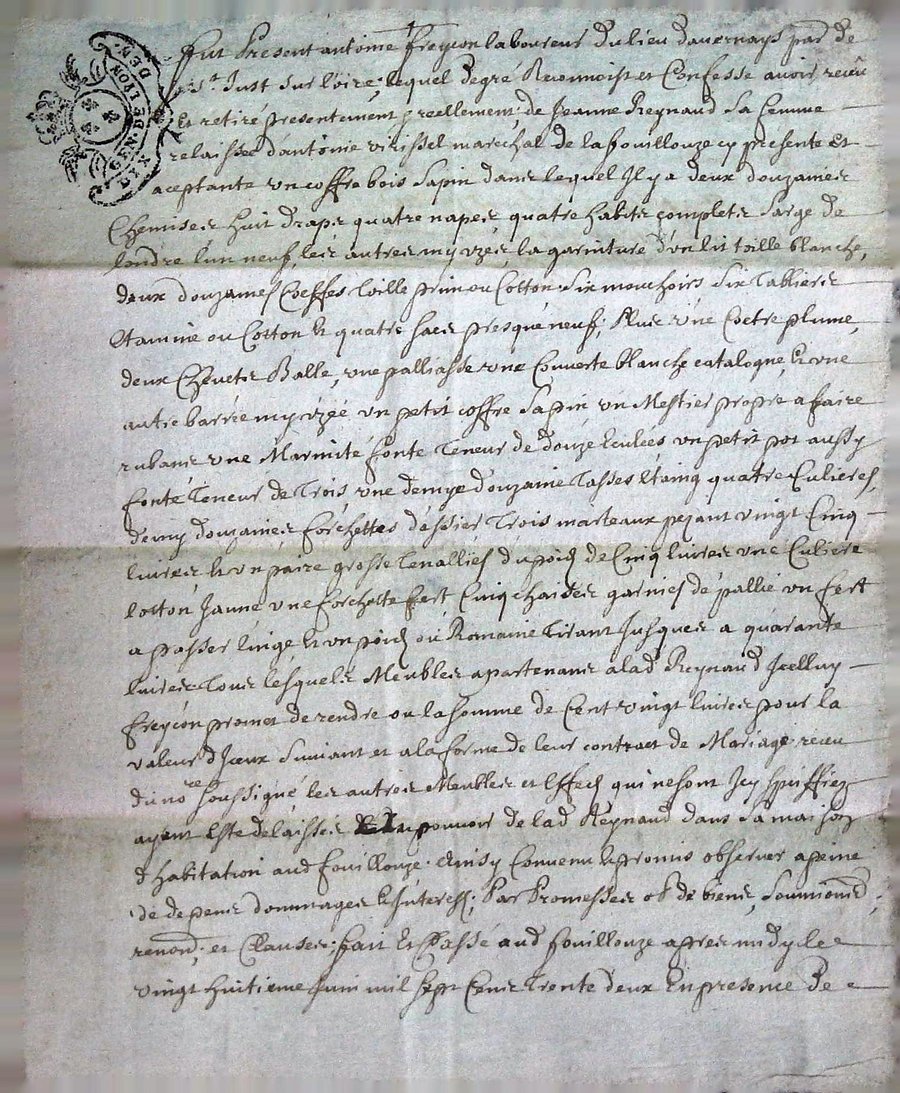 GEN. DE LYON
DEN
Fut Present antoine freycon laboureur du lieu davernays par de
st. Just sur loire, lequel de gré Reconnoist et Confesse avoir receu
et retiré présentement reellement, de Jeanne Reynaud sa femme
relaissée dantoine virissel marechal de la fouillouze cy présente et
aceptante un coffre bois sapin dans lequel Il y a deux douzaines
Chemises huit draps quatre napes quatre habits complets sarge de
londre lun neuf, les autres my uzés, la garniture d'un lit toille blanche,
deux douzaines Coeffes toille prin ou Cotton six mouchoirs six tabliers
Etamine ou Cotton & quatre sacs presque neuf, Plus une Coetre plume,
deux Chevets Balle, une palliasse une Couverte blanche catalogne, & une
autre barrée my uzée un petit coffre sapin un Mestier propre a faire
rubans une Marmite fonte teneur de douze Eculées un petit pot aussy
fonte teneur de Trois une demye douzaine Tasses Etaing quatre Culieres,
demy douzaines forchettes d'assier Trois marteaux pezant vingt Cinq
livres & un paire grosse Tenallies du poid de Cinq livres une Culiere
lotton Jaune une forchette fert Cinq chaises garnies de pallie un fert
a passer linge & un poid ou Romaine tirant Jusques a quarante
livres Tous lesquels Meubles apartenans a lad Reynaud Icelluy
freycon promet de rendre ou la somme de Cent vingt livres pour la
valeur d Iceux suivant et a la forme de leur contract de Mariage receu
du nore soussigné les autres Meubles et Effects qui ne sont Icy spiffiez
ayant Esté delaissés au pouvoir de lad Reynaud dans sa maison
d'habitation aud fouillouze. Ainsy Convenu & promis observer a peine
de depens dommages & Interest; Par Promesses ob de biens, soumions
renond; et Clauses; fait & Passé aud fouillouze apres midy le
vingt huitieme Juin mil sept Cens Trente deux En presence De